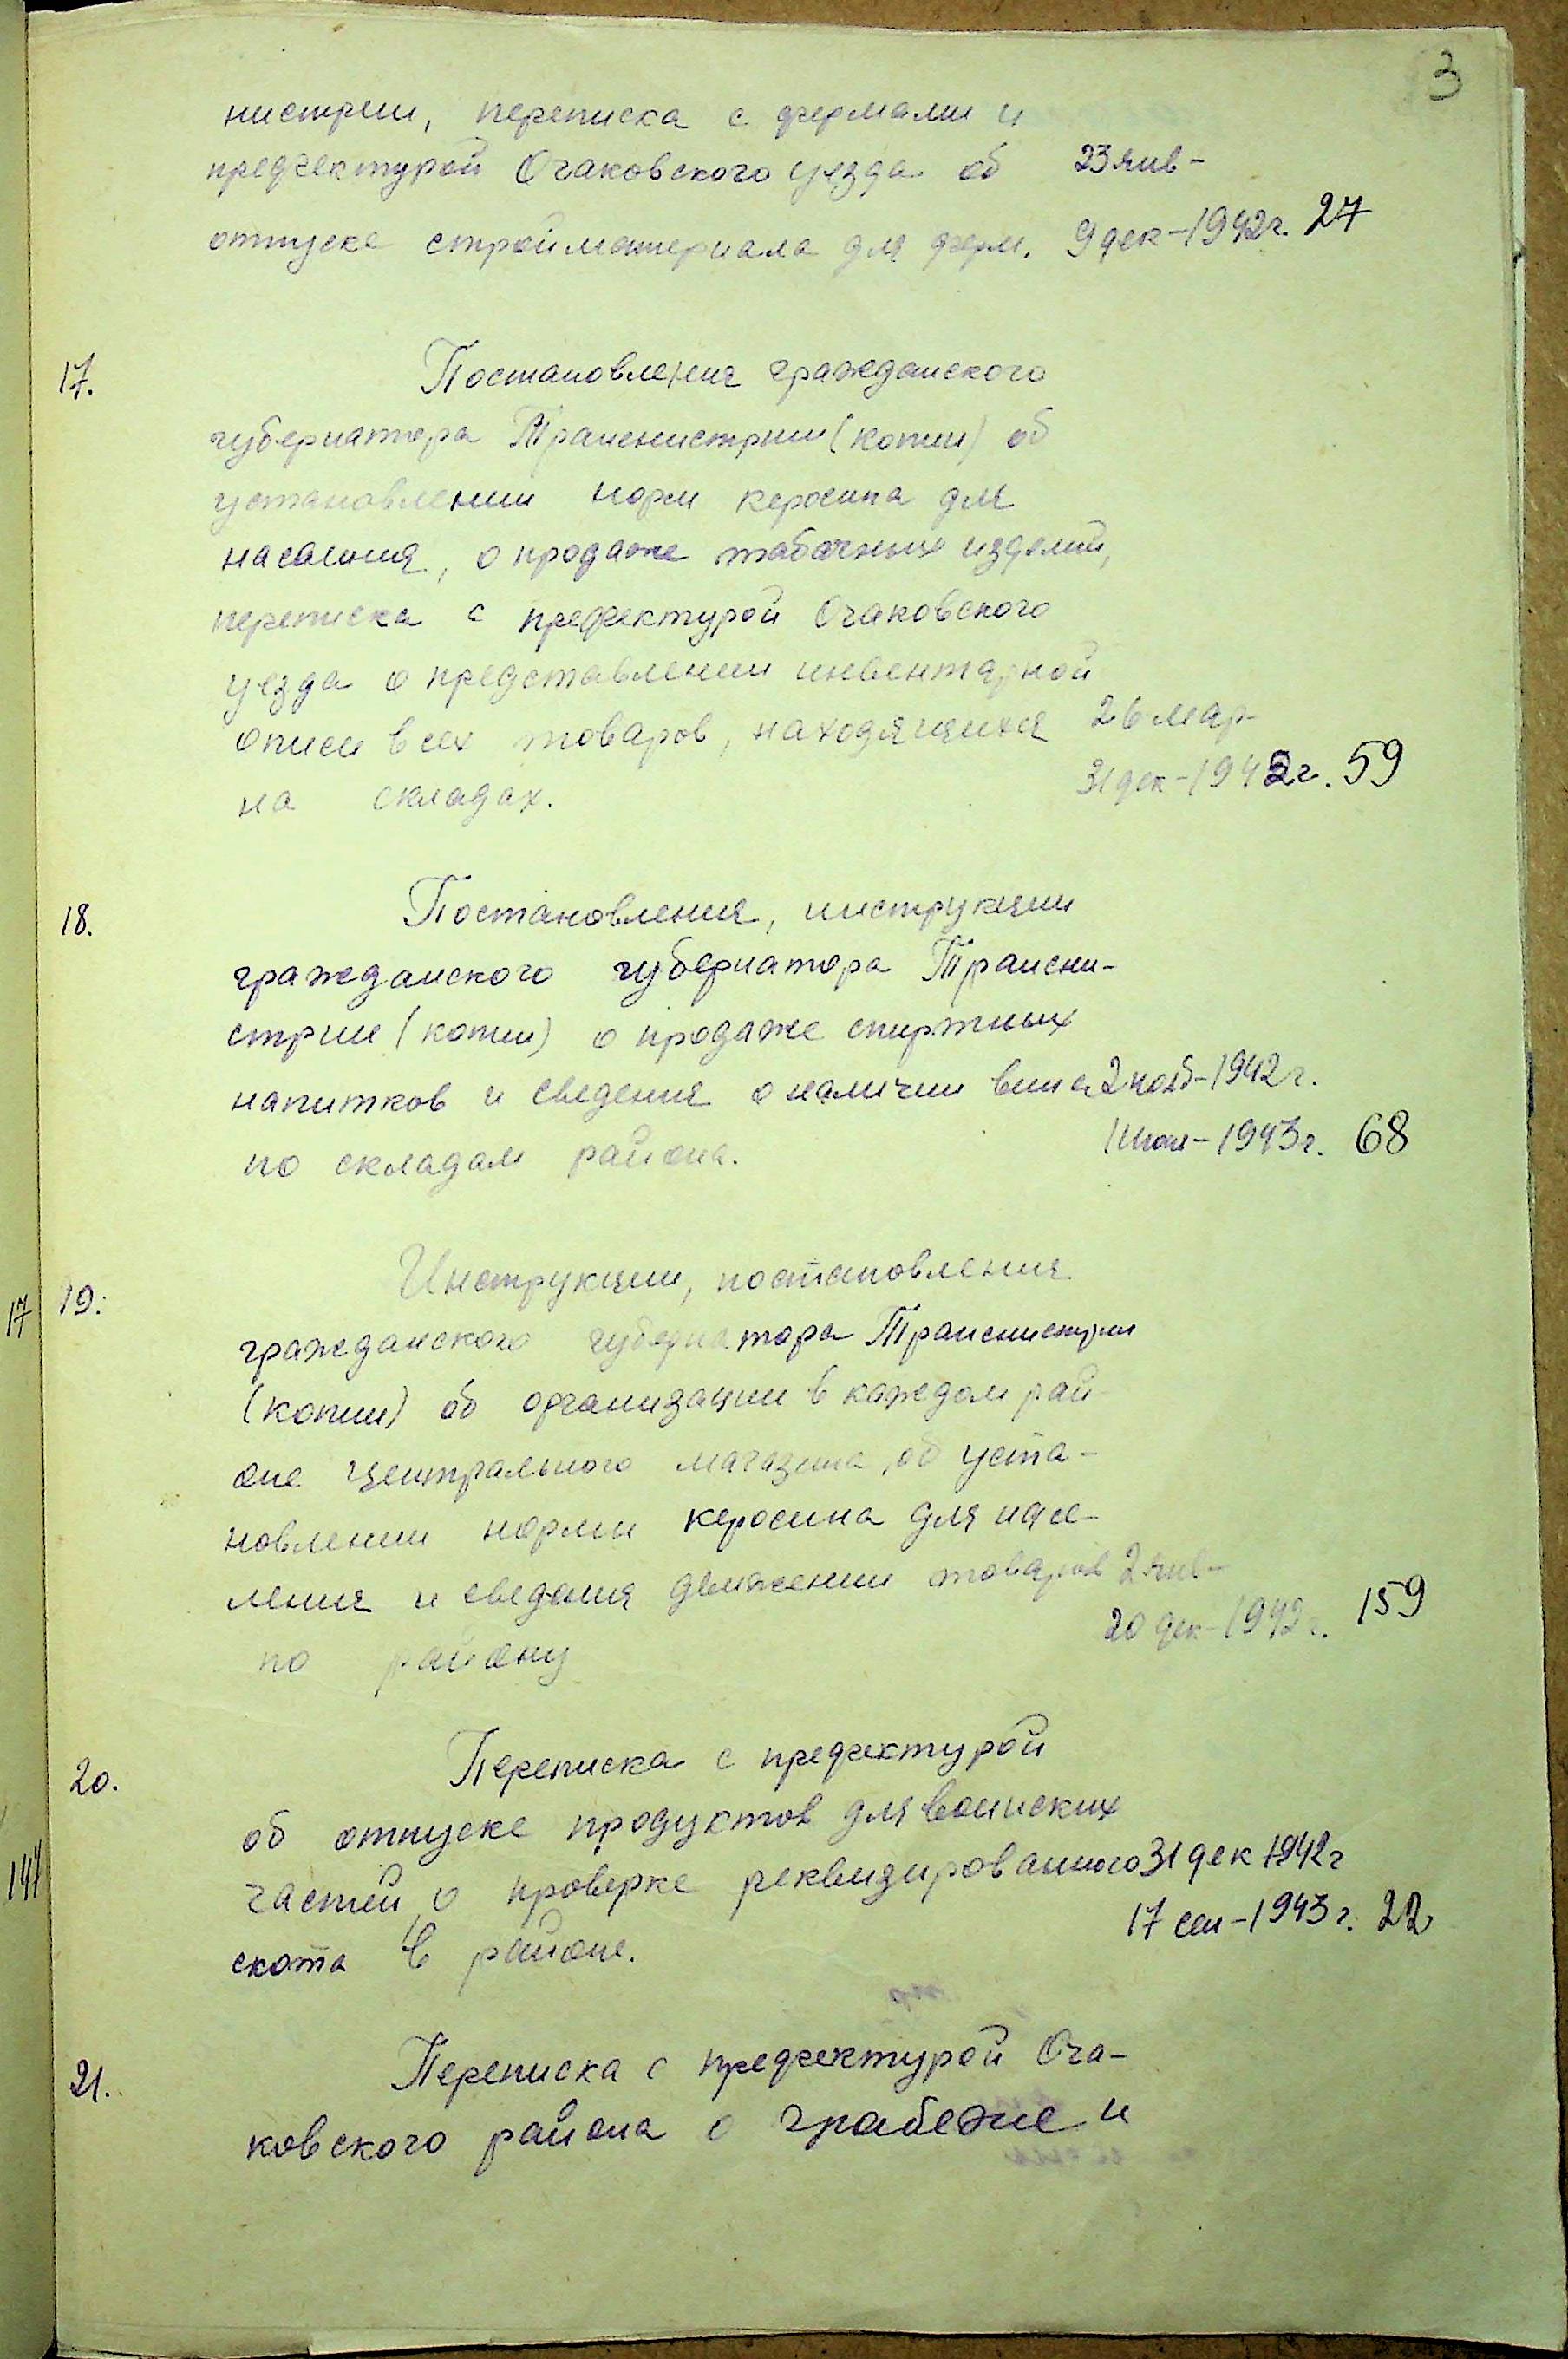 3
нистрии, переписка с фермами и
префектурой Очаковского уезда об 23 янв-
отпуске стройматериала для ферм. 9 дек-1942г. 27
17. Постановления гражданского
губернатора Транснистрии (копии) об
установлении норм керосина для
населения, о продаже табачных изделий,
переписка с префектурой Очаковского
уезда о представлении инвентарной
описи всех товаров, находящихся 26 мар-
на складах. 31 дек-1942г. 59
18. Постановления, инструкции
гражданского губернатора Трансни-
стрии (копии) о продаже спиртных
напитков и сведения о наличии вина 2 нояб-1942г.
по складам района. 1943г. 68
17 19. Инструкции, постановления
гражданского губернатора Транснистрии
(копии) об организации в каждом рай-
оне центрального магазина, об уста-
новлении нормы керосина для насе-
ления и сведения движении товаров 2 янв-
по району 20 дек-1942г. 159
20. Переписка с префектурой
об отпуске продуктов для воинских
частей, о проверке реквизированного 31 дек 1942г
скота в районе. 17 сен-1943г. 22
21. Переписка с префектурой Оча-
ковского района о грабеже и